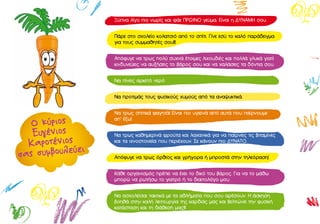 Ξύπνα λίγο πιο νωρίς και φάε ΠΡΩΙΝΟ γεύμα. Είναι η ΔΥΝΑΜΗ σου.
Πάρε στο σχολείο κολατσιό από το σπίτι. Γίνε εσύ το καλό παράδειγμα
για τους συμμαθητές σου!!
Απόφυγε να τρως πολύ συχνά έτοιμες λιχουδιές και πολλά γλυκά γιατί
κινδυνεύεις να αυξήσεις το βάρος σου και να χαλάσεις τα δόντια σου.
Να πίνεις αρκετό νερό.
Να προτιμάς τους φυσικούς χυμούς από τα αναψυκτικά.
Να τρως σπιτικά φαγητά. Είναι πιο υγιεινά από αυτά που παίρνουμε
απ' έξω!
Να τρως καθημερινά φρούτα και λαχανικά για να παίρνεις τις βιταμίνες
και τα ιχνοστοιχεία που περιέχουν. Σε κάνουν πιο ΔΥΝΑΤΟ.
Απόφυγε να τρως όρθιος και γρήγορα ή μπροστά στην τηλεόραση!
Κάθε οργανισμός πρέπει να έχει το δικό του βάρος. Για να το μάθω
μπορώ να ρωτήσω το γιατρό ή το διαιτολόγο μου.
Να ασχολείσαι τακτικά με τα αθλήματα που σου αρέσουν. Η άσκηση
βοηθάει στην καλή λειτουργία της καρδιάς μας και βελτιώνει την φυσική
κατάσταση και τη διάθεσή μας!!
Ο κύριος
Ευγένιος
Καροτένιος
σας συμβουλεύει